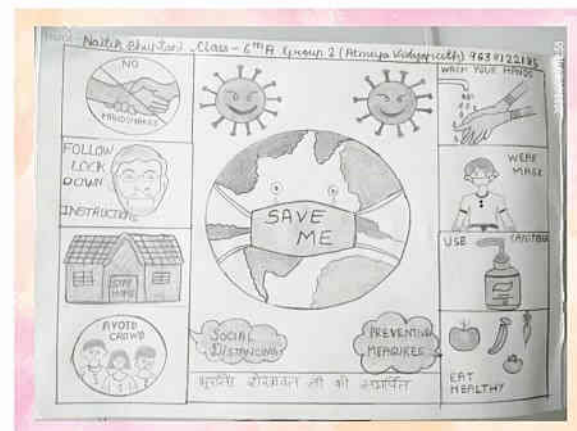 Naitik Bhuptani, Class - 6th A Group 2 (Atmiya Vidyapeeth)
NO
HANDSHAKES
FOLLOW
LOCK
DOWN
INSTRUCTIONS
STAY
HOME
AVOID
CROWD
SAVE
ME
SOCIAL
DISTANCING
PREVENTIVE
MEASURES
WASH YOUR HANDS
WEAR
MASK
USE SANITIZER
EAT
HEALTHY